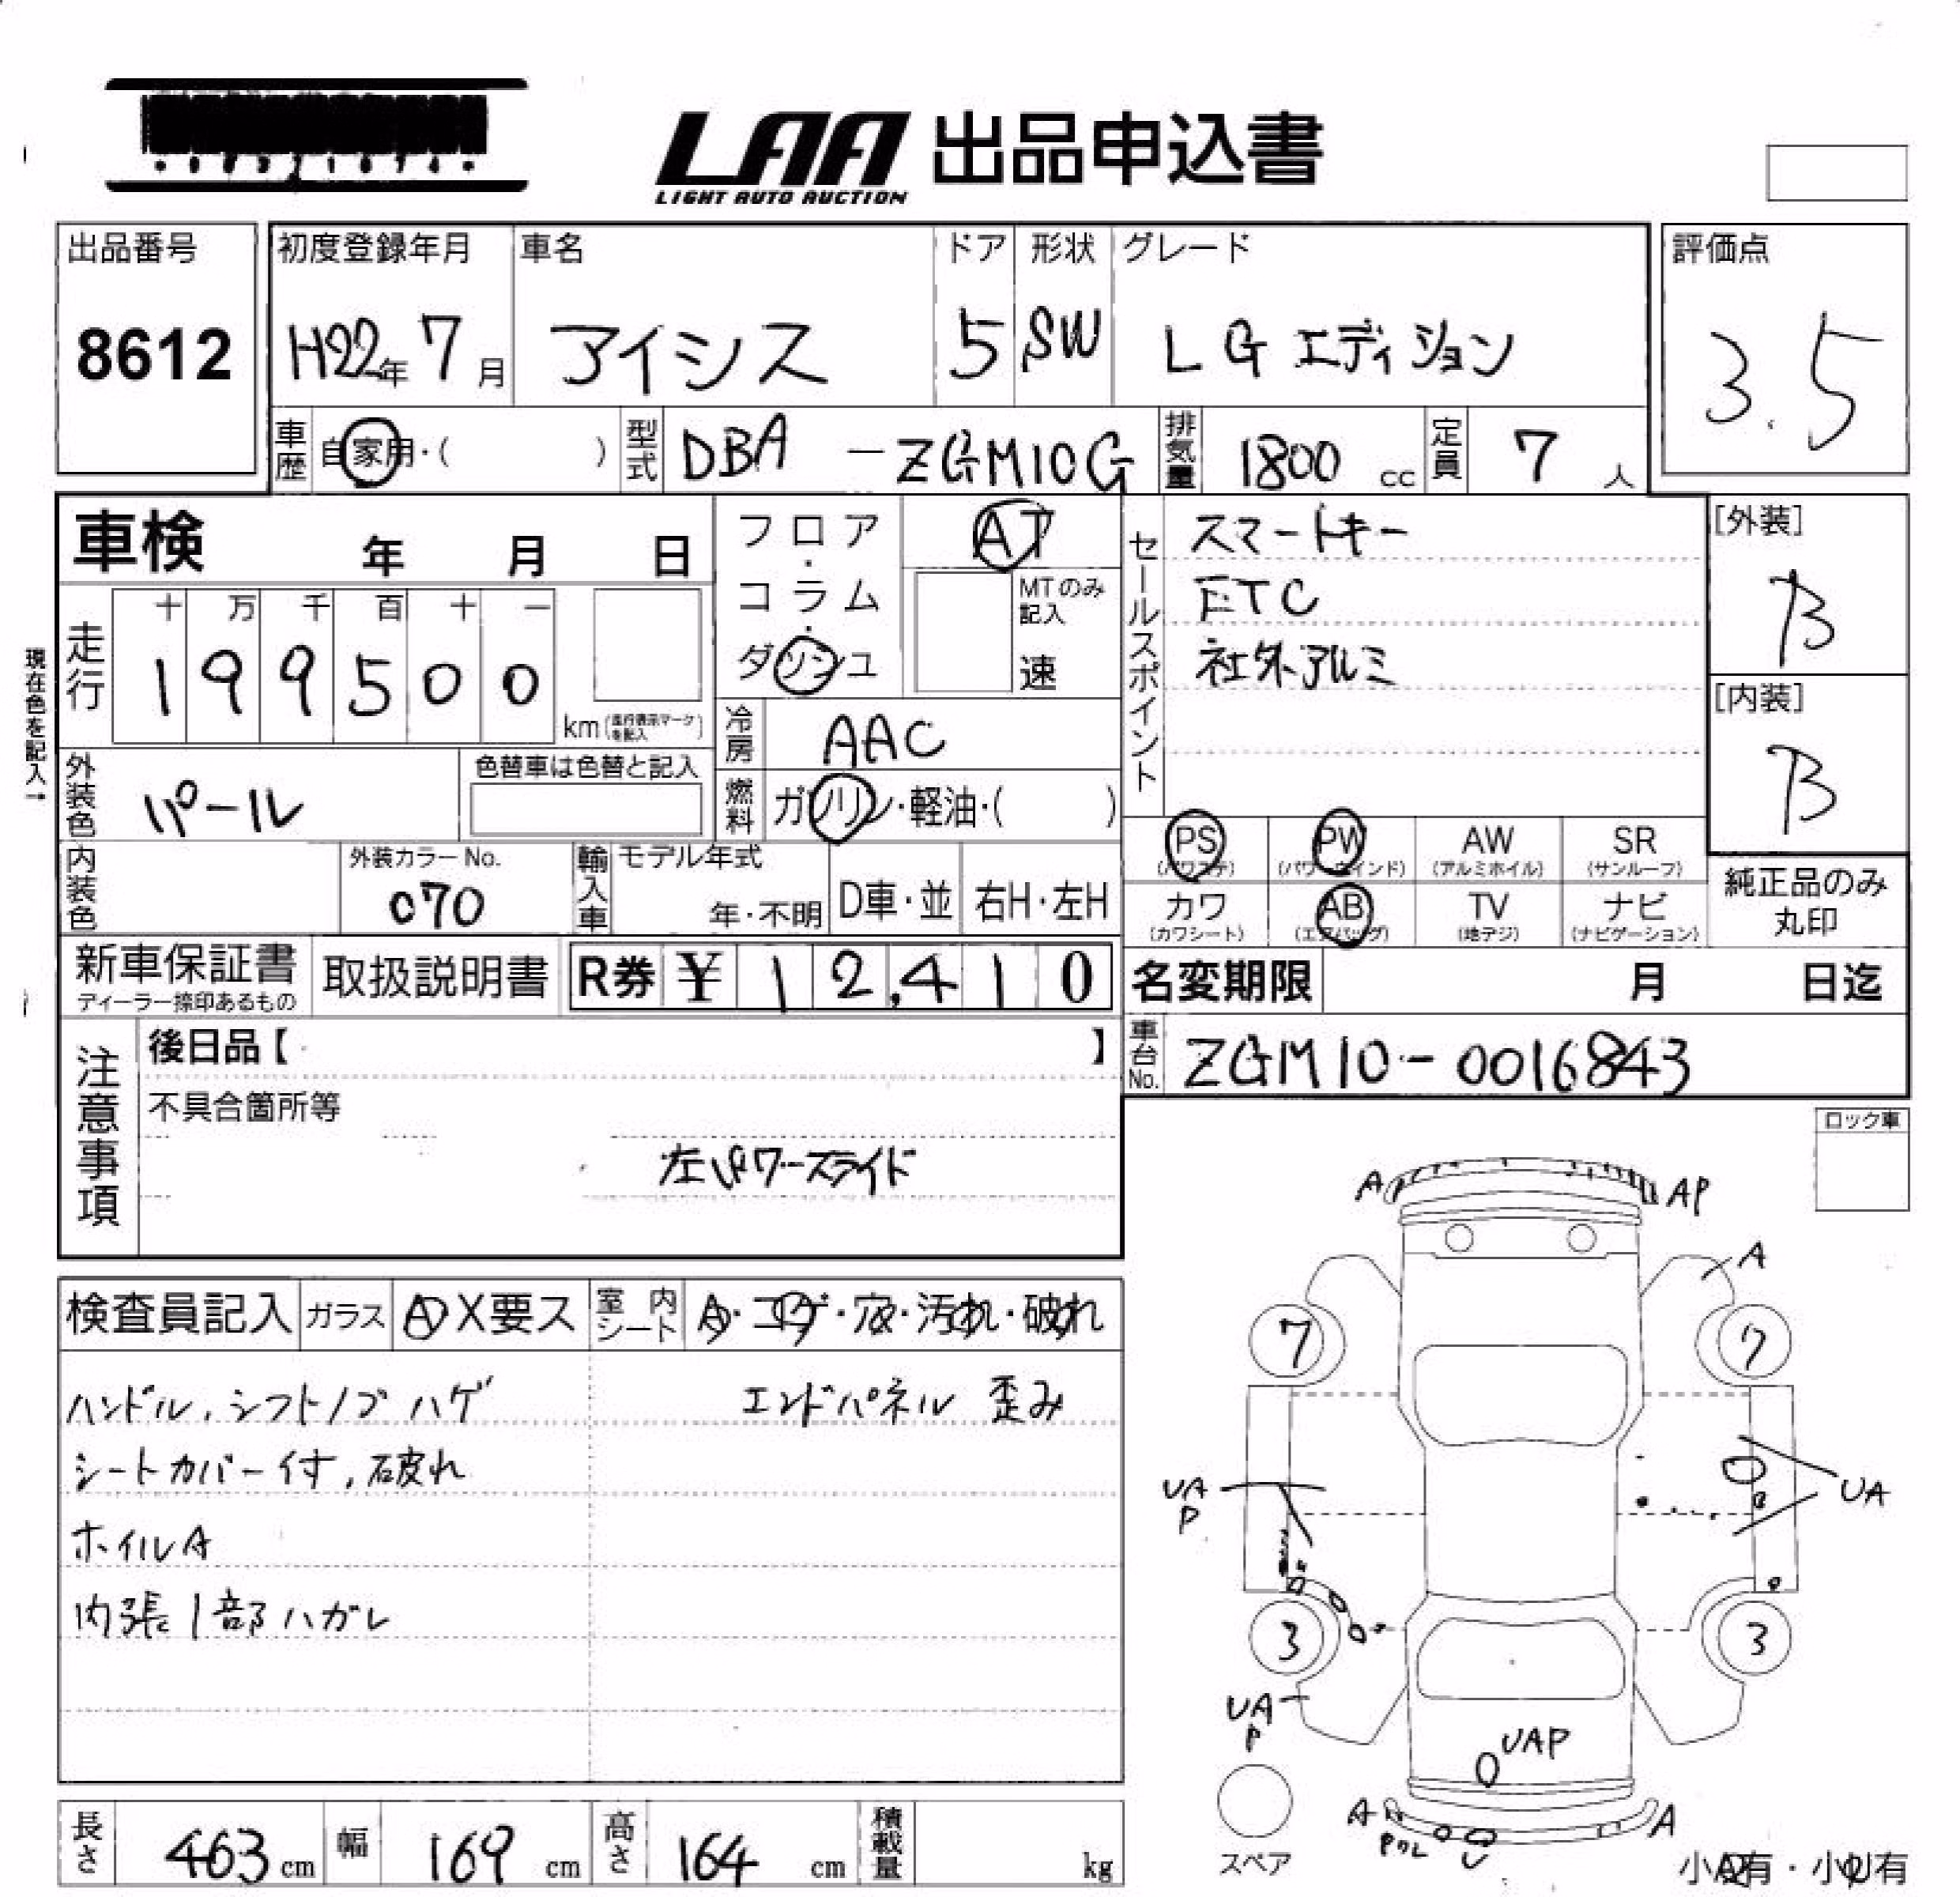 LAA 出品申込書
LIGHT AUTO AUCTION
出品番号
8612
初度登録年月
H22年7月
車名
アイシス
ドア
5
形状
SW
グレード
L Gエディション
評価点
3.5
車歴
自家用・( )
型式
DBA -ZGM10G
排気量
1800 cc
定員
7人
車検 年 月 日
現在色を記入→
走行
十 万 千 百 十 一
1 9 9 5 0 0
km(走行表示マークを記入)
フロア・コラム・ダッシュ
AT
MTのみ記入
速
冷房
AAC
燃料
ガソリン・軽油・( )
セールスポイント
スマートキー
ETC
社外アルミ
[外装]
B
[内装]
B
外装色
パール
色替車は色替と記入
内装色
外装カラーNo.
070
輸入車
モデル年式
年・不明
D車・並
右H・左H
PS
(パワステ)
PW
(パワーウインド)
AW
(アルミホイル)
SR
(サンルーフ)
カワ
(カワシート)
AB
(エアバッグ)
TV
(地デジ)
ナビ
(ナビゲーション)
純正品のみ
丸印
新車保証書
ディーラー捺印あるもの
取扱説明書
R券 ¥ 12,410
名変期限 月 日迄
車台No.
ZGM10-0016843
注意事項
後日品【 】
不具合箇所等
左パワースライド
ロック車
検査員記入
ガラス
A X要ス
室内シート
A・コゲ・穴・汚れ・破れ
ハンドル、シフトノブ ハゲ
エンドパネル 歪み
シートカバー付、破れ
ホイルA
内張1部ハガレ
A
AP
A
7
7
UA
P
UA
3
3
UA
P
UAP
A
Pワレ
U
A
スペア
小A有・小U有
長さ
463 cm
幅
169 cm
高さ
164 cm
積載量
kg